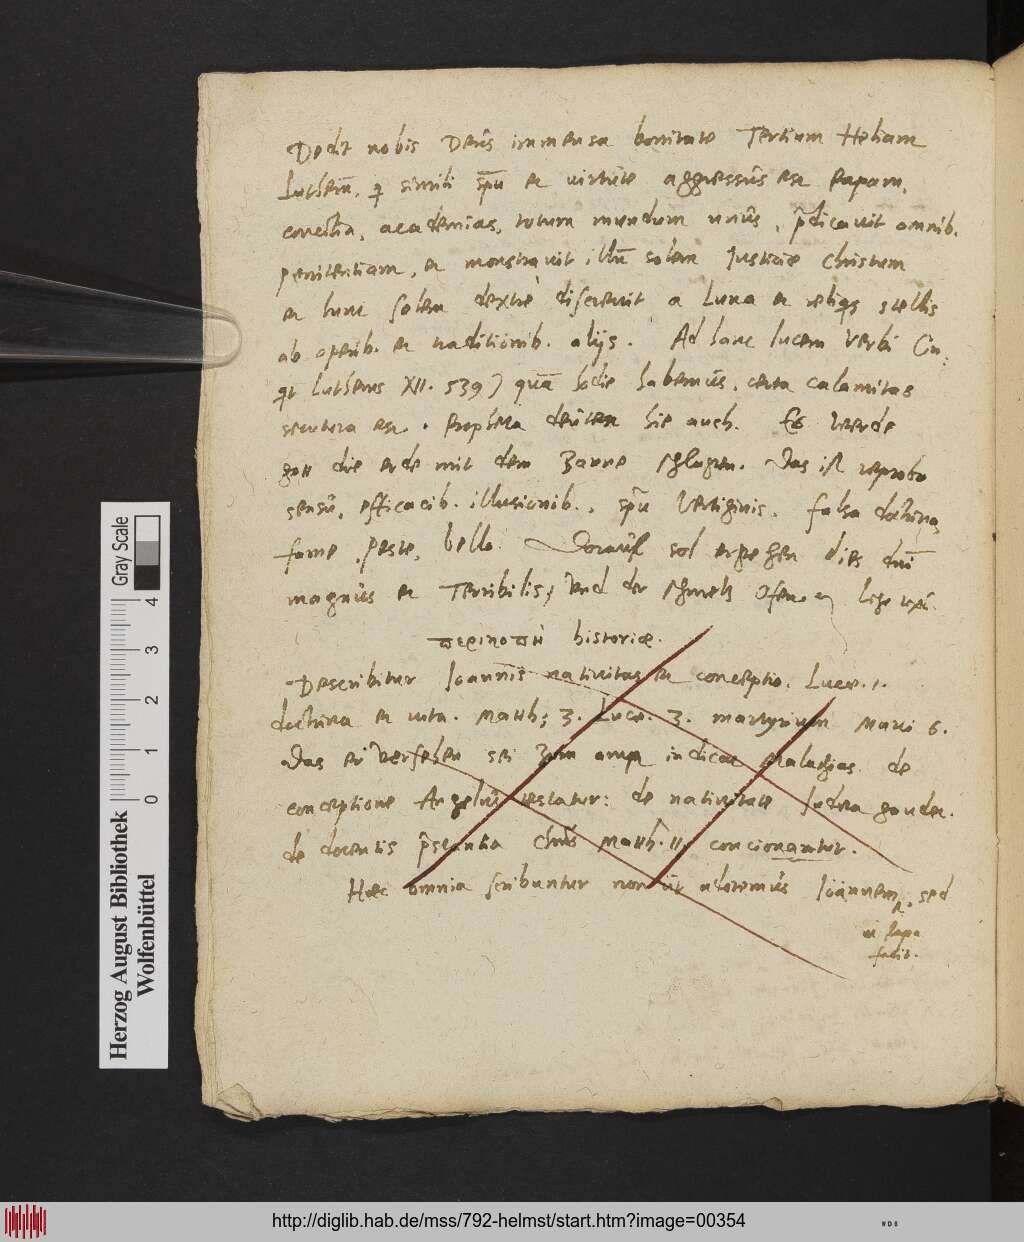 Dedit nobis Deus immensa bonitate Tertium Heliam
Lutherũ, q̃ simili spũ et virtute aggressus est Papam,
concilia, academias, totum mundum unus, p̃dicavit omnib.
penitentiam, et monstravit illũ solem Justiciæ Christum
et hunc solem dextre discrevit a Luna et reliqs stellis
ab operib. et traditionib. alijs. Ad hanc lucem verbi
Lutherus XII. 539) quã hodie habemus, certa calamitas
secutura est. Propheta deutet sie auch. Er werde
gott die erde mit dem Banne schlagen. Das ist reprobo
sensu, efficacib. illusionib., spũ Vertiginis, falsa doctrina,
fame, peste, bello. Darauff sol ergehen dies dñi
magnus et Terribilis, Und der schmeltz Ofen.
περικοπὴ historiæ.
Describitur Joannis nativitas et conceptio. Lucæ. 1.
doctrina et vita. Matth: 3. Lucæ. 3. martyrium Marci 6.
Das er versehen sei zum ampt indicat Malachias. de
conceptione Angelus testatur: de nativitate Judæa gaudet.
de docentis p̃stantia Chrũs Matth. 11 concionantur.
Hæc omnia scribuntur non ut adoremus Joannem, sed
ut Papa
facit.
Gray Scale
0 1 2 3 4
Herzog August Bibliothek
Wolfenbüttel
http://diglib.hab.de/mss/792-helmst/start.htm?image=00354